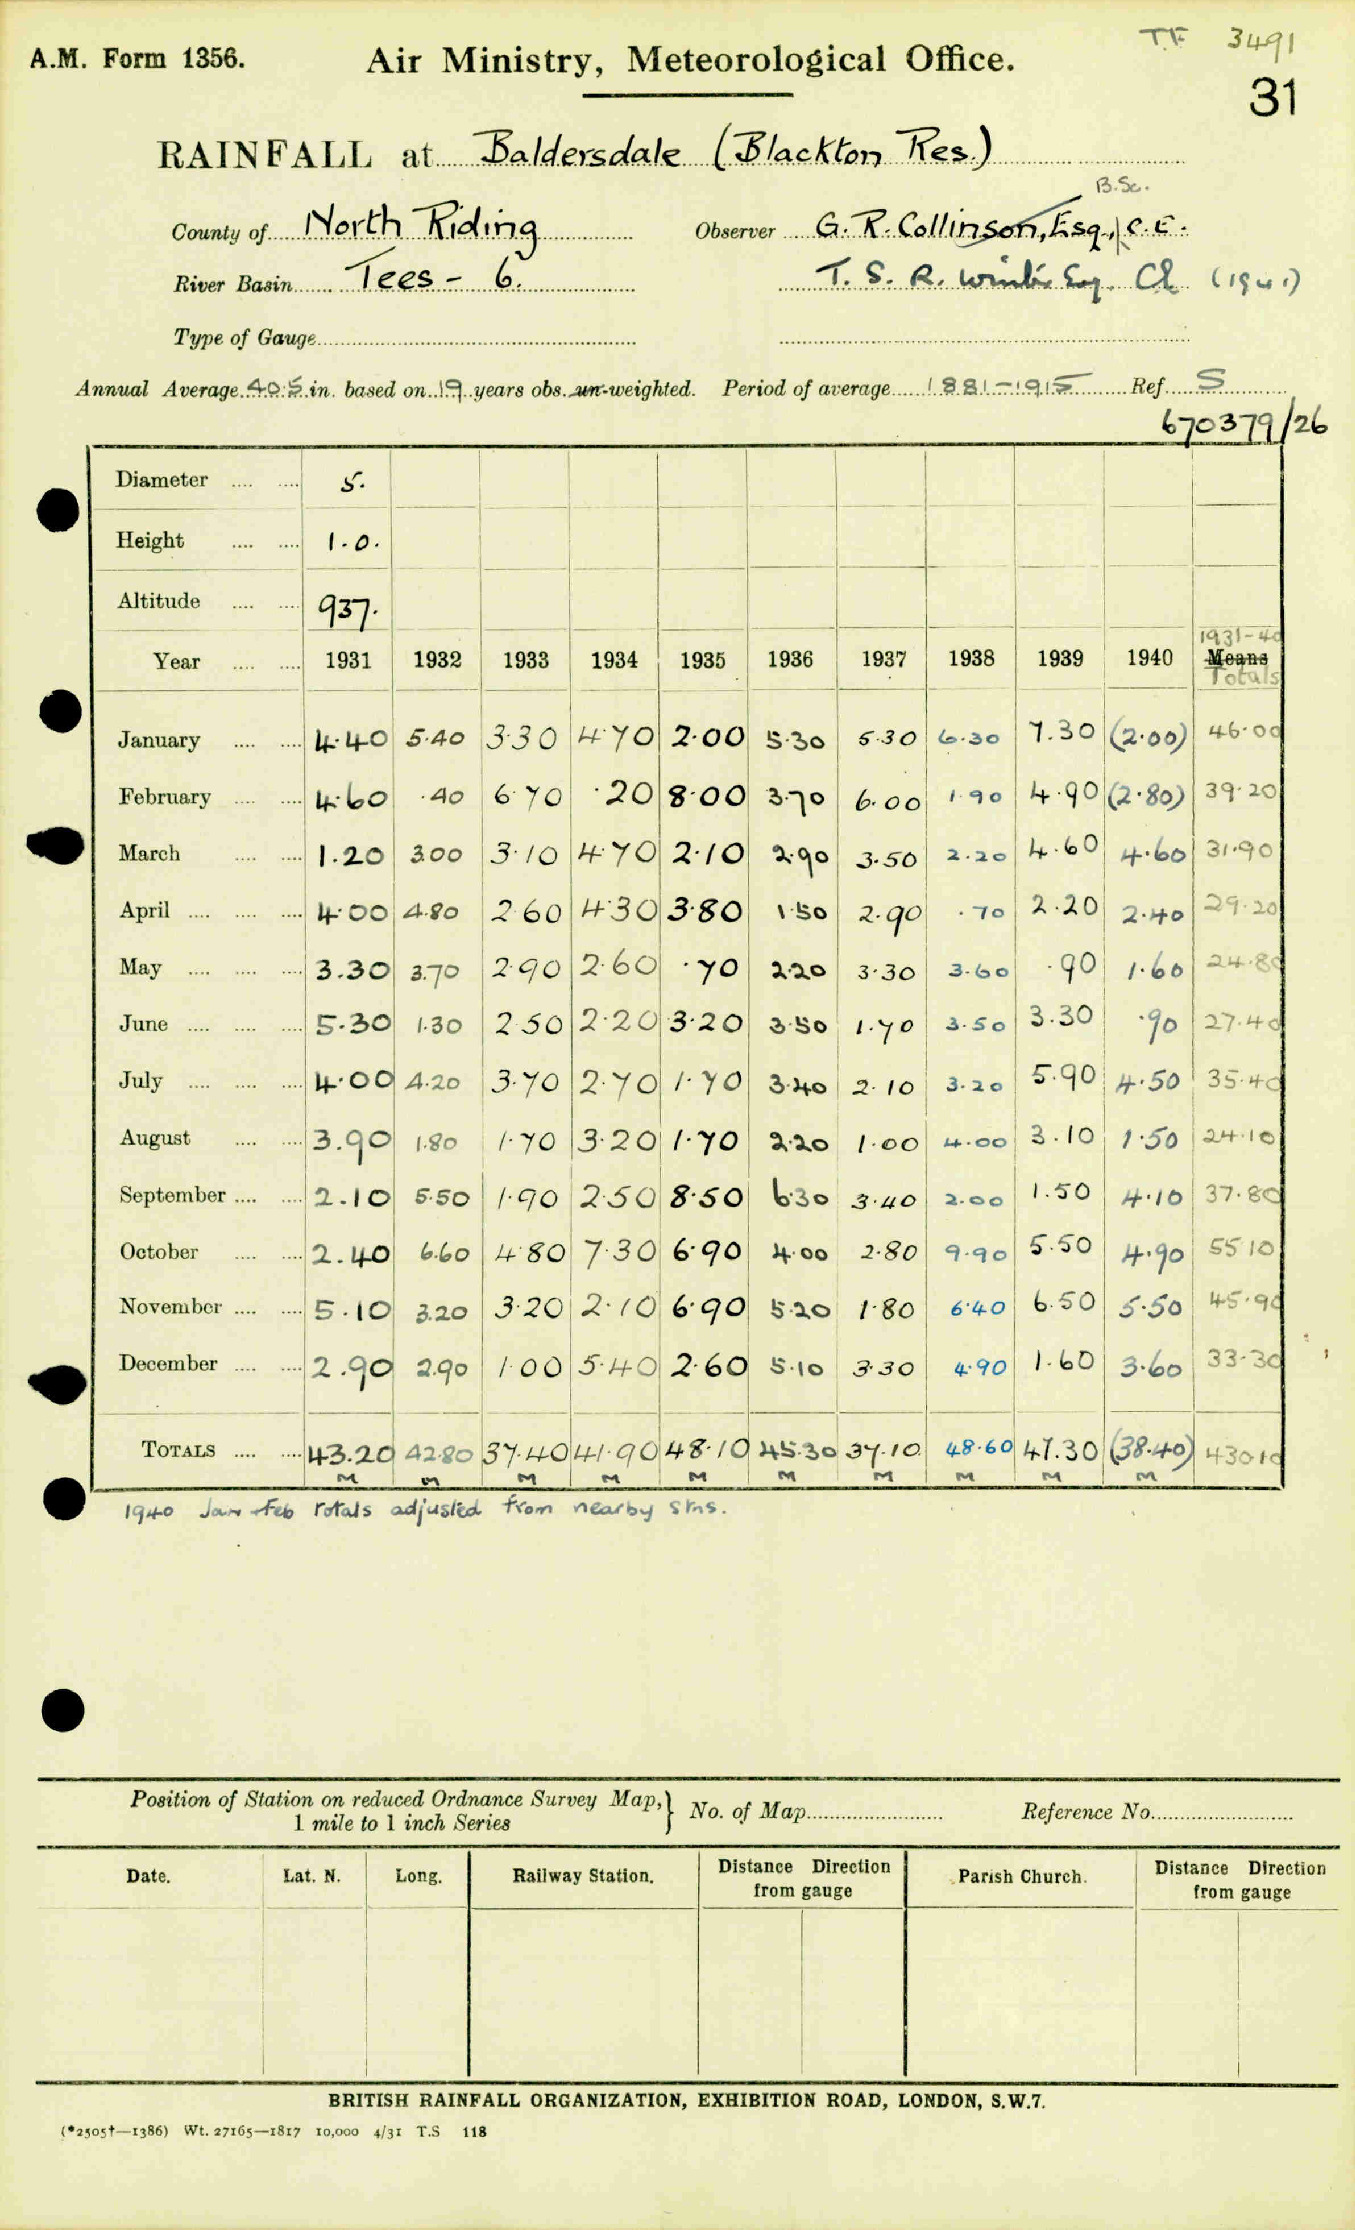 T.F. 3491
A.M. Form 1356. Air Ministry, Meteorological Office.
31
RAINFALL at Baldersdale (Blackton Res.)
B.Sc.
County of North Riding Observer G. R. Collinson, Esq., C.E.
River Basin Tees - 6. T. S. R. Esq. (1941)
Type of Gauge
Annual Average 40.5 in. based on 19 years obs. un-weighted. Period of average 1881-1915 Ref. S
670379/26
Diameter 5.
Height 1.0.
Altitude 937.
1931-40
Year 1931 1932 1933 1934 1935 1936 1937 1938 1939 1940 Means
Totals
January 4.40 5.40 3.30 4.70 2.00 5.30 5.30 6.30 7.30 (2.00) 46.00
February 4.60 .40 6.70 .20 8.00 3.70 6.00 1.90 4.90 (2.80) 39.20
March 1.20 3.00 3.10 4.70 2.10 2.90 3.50 2.20 4.60 4.60 31.90
April 4.00 4.80 2.60 4.30 3.80 1.50 2.90 .70 2.20 2.40 29.20
May 3.30 3.70 2.90 2.60 .70 2.20 3.30 3.60 .90 1.60 24.80
June 5.30 1.30 2.50 2.20 3.20 3.50 1.70 3.50 3.30 .90 27.40
July 4.00 4.20 3.70 2.70 1.70 3.40 2.10 3.20 5.90 4.50 35.40
August 3.90 1.80 1.70 3.20 1.70 2.20 1.00 4.00 3.10 1.50 24.10
September 2.10 5.50 1.90 2.50 8.50 6.30 3.40 2.00 1.50 4.10 37.80
October 2.40 6.60 4.80 7.30 6.90 4.00 2.80 9.90 5.50 4.90 55.10
November 5.10 3.20 3.20 2.10 6.90 5.20 1.80 6.40 6.50 5.50 45.90
December 2.90 2.90 1.00 5.40 2.60 5.10 3.30 4.90 1.60 3.60 33.30
TOTALS 43.20 42.80 37.40 41.90 48.10 45.30 37.10 48.60 47.30 (38.40) 430.10
M M M M M M M M M M
1940 Jan + Feb totals adjusted from nearby stns.
Position of Station on reduced Ordnance Survey Map, } No. of Map Reference No.
1 mile to 1 inch Series
Date. Lat. N. Long. Railway Station. Distance Direction from gauge Parish Church. Distance Direction from gauge
BRITISH RAINFALL ORGANIZATION, EXHIBITION ROAD, LONDON, S.W.7.
(*2505†—1386) Wt. 27165—1817 10,000 4/31 T.S 118